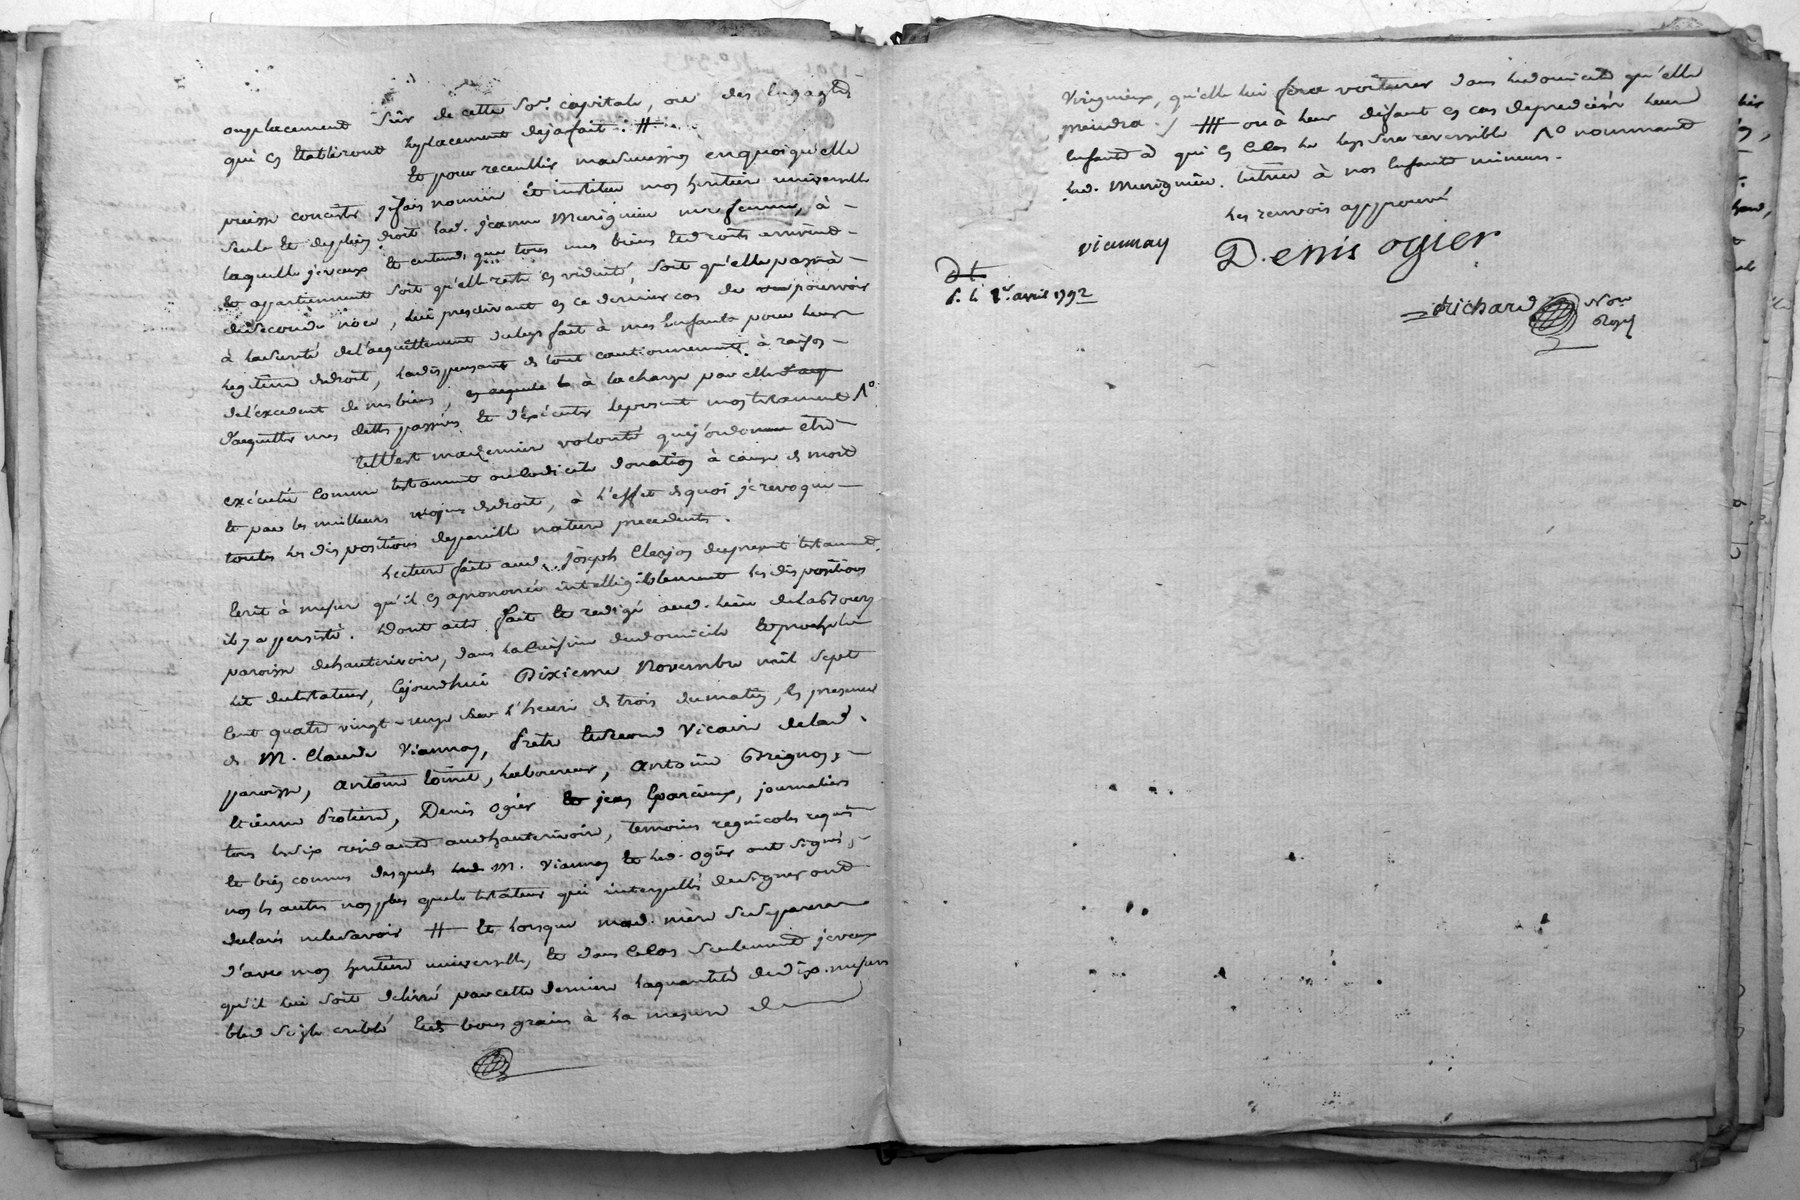 ou placement sûr de cette so.e capitale, ou des engagts
qui en établiront l'emplacement deja fait. #
Et pour recueillir ma succession en quoi qu'elle
puisse consister je fais nomme et institue mon heritiere universelle
seule et de plein droit lad. jeanne Murigneux ma femme, à
laquelle je veux et entends que tous mes biens et droits arrivent
et appartiennent soit qu'elle reste en viduité, soit qu'elle passe à
de secondes noces, lui prescrivant en ce dernier cas de pourvoir
à la sureté de l'acquittement du legs fait à mes Enfants pour leur
legitime de droit, la dispensant de tout cautionnement à raison
de l'excedent de mes biens, à la charge par elle
d'acquitter mes dettes passives et d'exécuter le present mon testament
telle est ma derniere volonté que j'ordonne etre
exécutée comme testament ou codicile donation à cause de mort
et par les meilleurs moyens de droit, à l'effet de quoi je revoque
toutes les dispositions de pareille nature precedents.
Lecture faite aud. Joseph Clerjon du present testament
Ecrit à mesure qu'il en a prononcé intelligiblement les dispositions
il y a persisté. Dont acte fait et redigé aud. lieu de
paroisse de hauterivoire, dans la Cuisine du domicile
lit du testateur, Cejourdhui Dixieme Novembre mil sept
Cent quatre vingt-onze sur l'heure de trois du matin, En presence
de M. Claude Viannay, Prêtre et second Vicaire de lad.
paroisse, antoine Coinet, laboureur, antoine Gregnon,
Etienne Protiere, Denis Ogier et jean Eparcieux, journaliers
tous les six residants aud hauterivoire, temoins regnicoles requis
et bien connus desquels M. Viannay et led. Ogier ont signé,
non les autres non plus que le testateur qui interpellés de signer ont
declaré ne le savoir # Et lorsque mad. mere se separera
d'avec mon heritiere universelle, et dans ce cas seulement je veux
qu'il lui soit delivré par cette derniere la quantité de dix mesures
bled seigle criblé et bons grains à la mesure de
Virigneux, qu'elle lui fera voiturer dans le domicile qu'elle
prendra./ ## ou à leur défaut en cas de predécès leurs
Enfants à qui en ce cas le legs sera reversible nommant
lad. Murigneux tutrice à nos Enfants mineurs.
Les renvois approuvé
viannay Denis ogier
1er avril 1792
Richard Nore
Royl